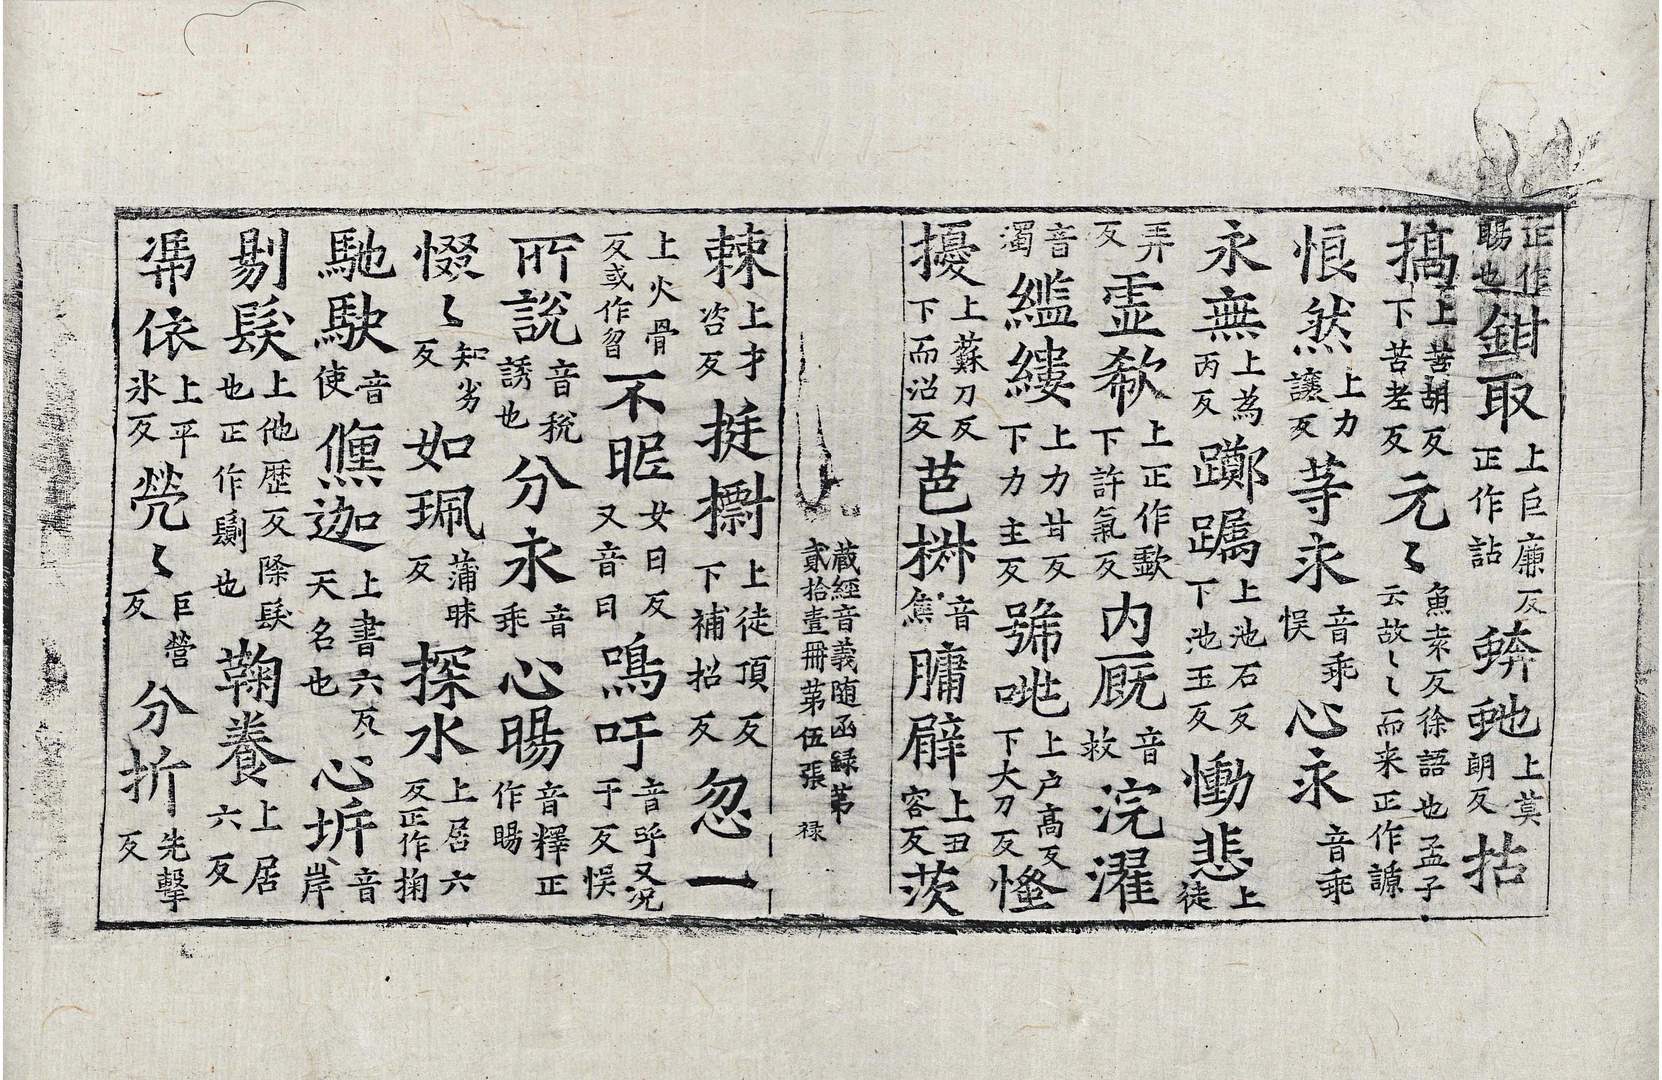 正作賜也鉗取上巨廉反正作詀蛴虵上莫朗反拈
搞上苦胡反下苦老反元〻魚袁反徐語也孟子云故〻而来正作謜
悢然上力讓反䓁永音乖悮心永音乖
永無上為丙反躑躅上池石反下池玉反慟悲上徒
弄反霊欷上正作歔下許氣反内厩音救浣濯
音濁繿縷上力甘反下力主反號咷上户高反下大刀反慅
擾上蘇刀反下而沼反芭椒音焦牅臂上丑容反茨
藏經音義随函録第
貳拾壹冊第伍張 禄
棘上才咨反挺上徒頂反下補招反忽一
上火骨反或作曶不眤女日反又音日鳴吁音乎又况于反悮
所說音稅誘也分永音乖心暘音釋正作暘
惙〻知劣反如珮蒲昧反探水上居六反正作掬
馳駛音使儵迦上書六反天名也心垿音岸
剔髮上他歷反除髮也正作鬀也鞠養上居六反
凭依上平氷反煢〻巨營反分折先擊反